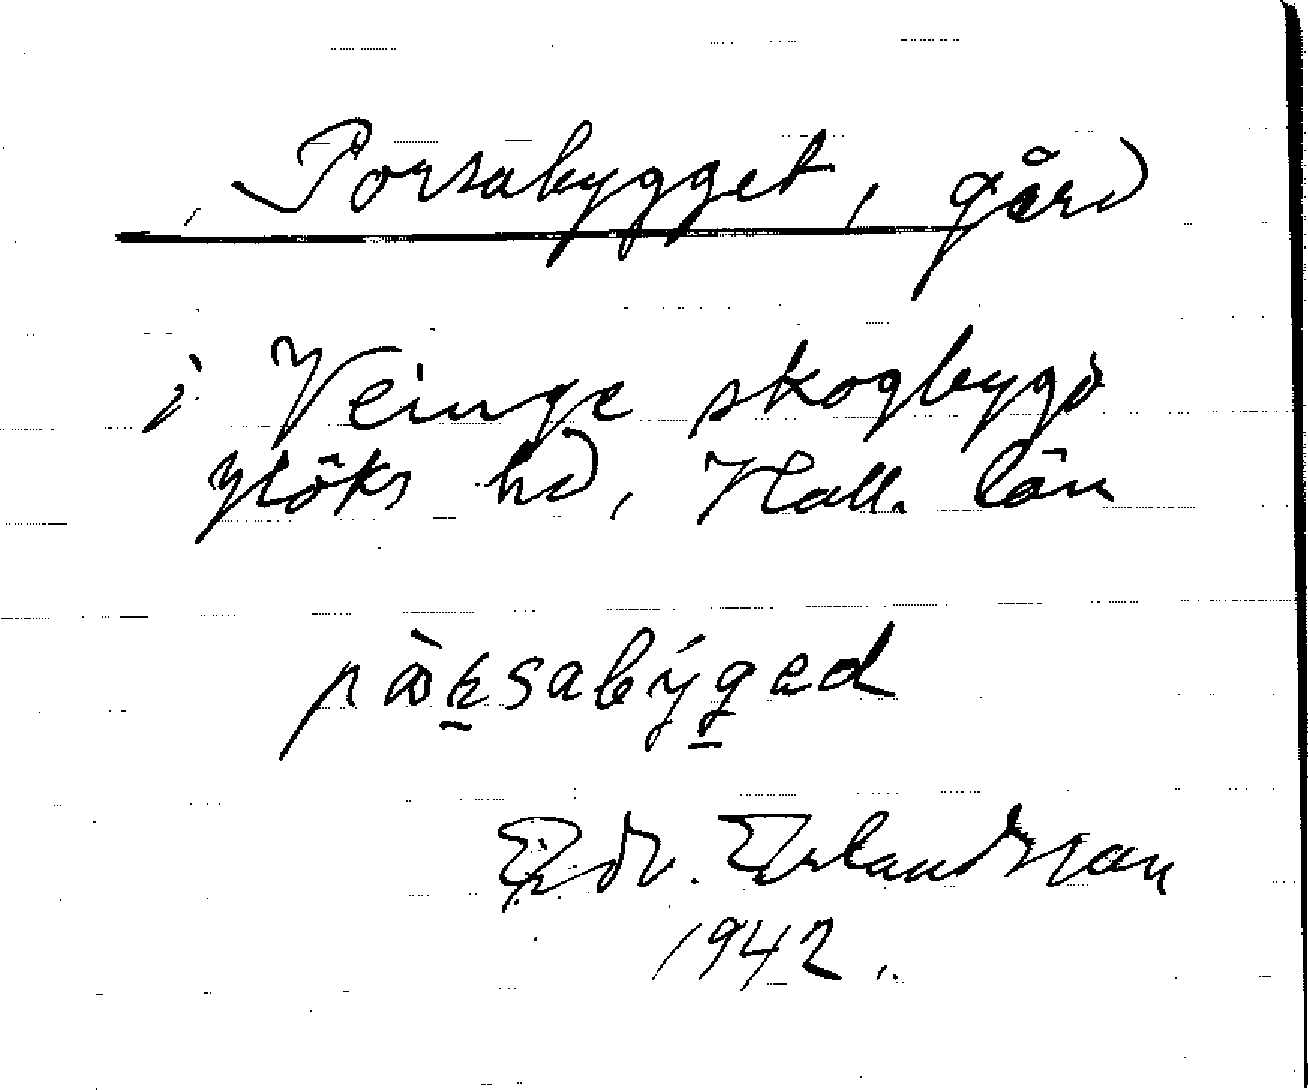 Porsabygget, gård
i Veinge skogbygd
Höks hd, Hall. län
på̀ʀ̲sabýg̲ed
Edv. Erlandsson
1942.